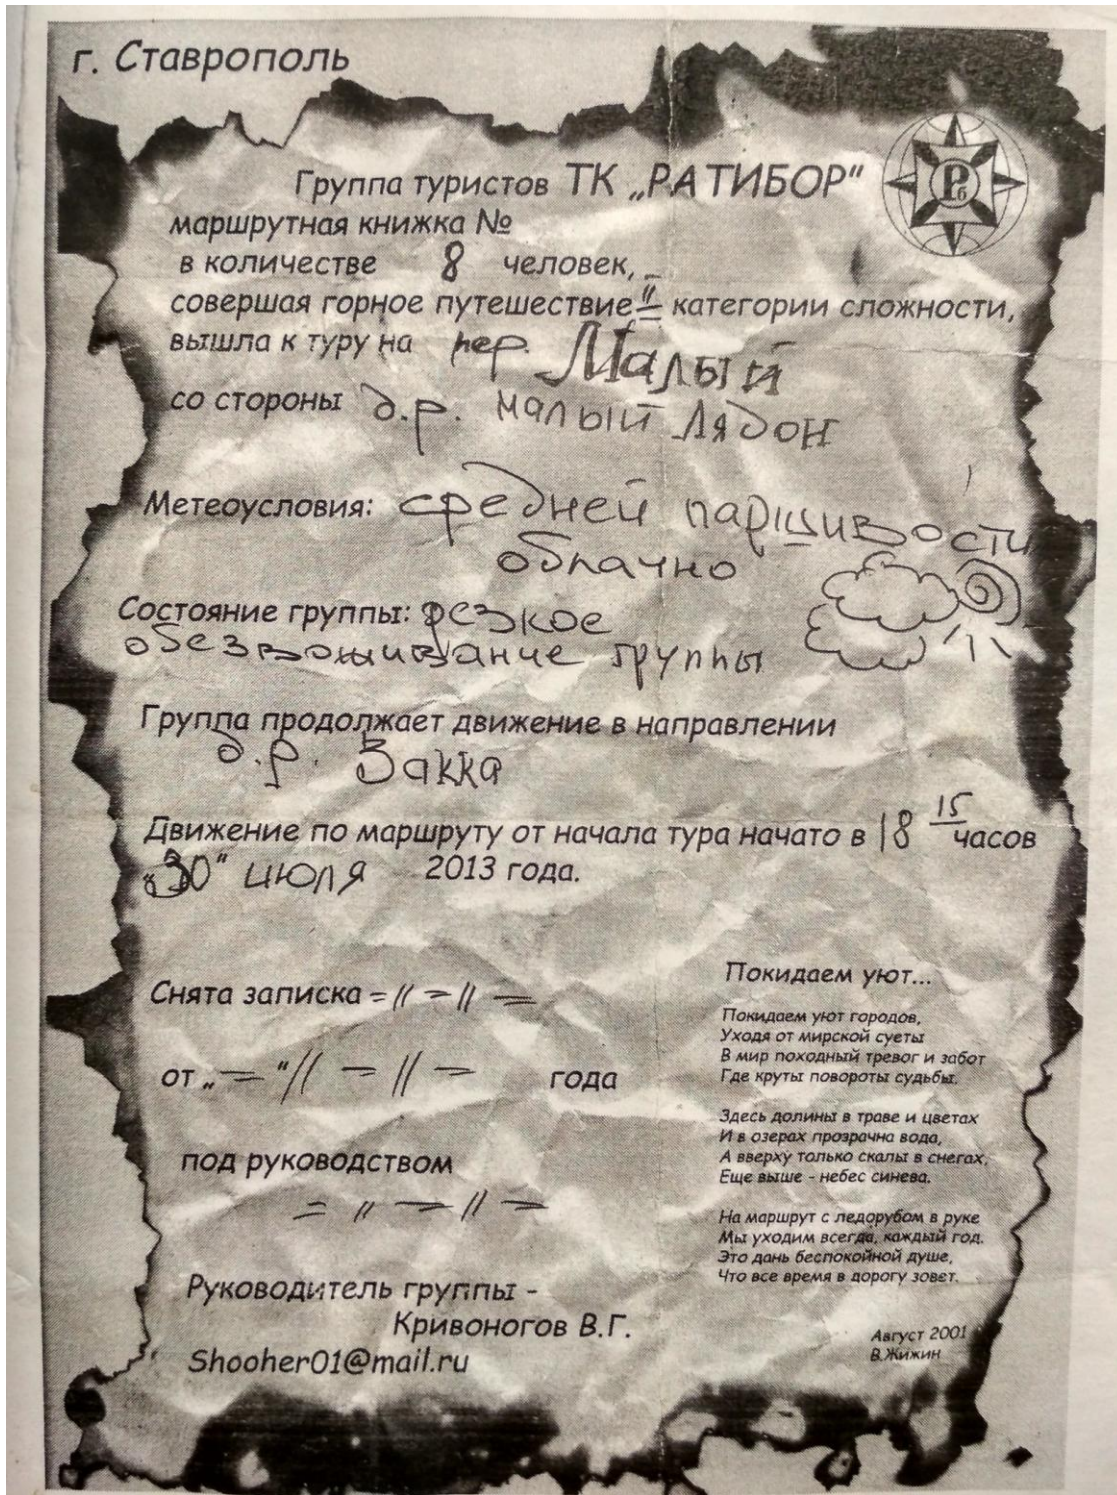 г. Ставрополь
Группа туристов ТК „РАТИБОР"
маршрутная книжка №
в количестве 8 человек,
совершая горное путешествие II категории сложности,
вышла к туру на пер. Малый
со стороны д.р. малый Лядон
Метеоусловия: средней паршивости
облачно
Состояние группы: резкое
обезвоживание группы
Группа продолжает движение в направлении
д.р. Закка
Движение по маршруту от начала тура начато в 18 15 часов
„30" июля 2013 года.
Снята записка = // = // =
от „ = "// = // = года
под руководством
= // = // =
Руководитель группы -
Кривоногов В.Г.
Shooher01@mail.ru
Покидаем уют...
Покидаем уют городов,
Уходя от мирской суеты
В мир походный тревог и забот
Где круты повороты судьбы.
Здесь долины в траве и цветах
И в озерах прозрачна вода,
А вверху только скалы в снегах,
Еще выше - небес синева.
На маршрут с ледорубом в руке
Мы уходим всегда, каждый год.
Это дань беспокойной душе,
Что все время в дорогу зовет.
Август 2001
В.Жижин